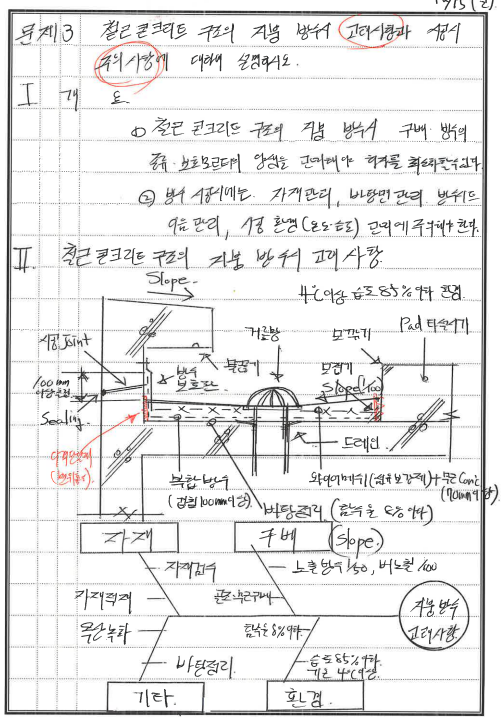 문제3 철근 콘크리트 구조의 지붕 방수시 고려사항과 시공시
주의사항에 대하여 설명하시오.
I 개 요
① 철근 콘크리트 구조의 지붕 방수시 구배·방수의
종류·보호몰탈의 양생을 관리해야 하자를 최소화할수있다.
② 방수 시공시에는 자재관리, 바탕면관리 방수
이음관리, 시공 환경(온도·습도) 관리에 주의해야 한다.
II. 철근 콘크리트 구조의 지붕 방수시 고려사항
Slope
4℃이상 습도 85%이하 환경
시공 Joint
방수
보호판
물끊기
거름망
모따기
Pad 타설하기
100mm
Sealing
Slope 1/100
드레인
복합방수
(겹침 100mm이상)
와이어메쉬 + 무근Con'c
(70mm이상)
바탕정리 (함수율 8%이하)
자재
구배
(Slope)
자재검수
노출방수 1/50, 비노출 1/100
자재적재
지붕방수
고려사항
함수율 8%이하
바탕정리
습도 85%이하
기온 4℃이상
기타
환경